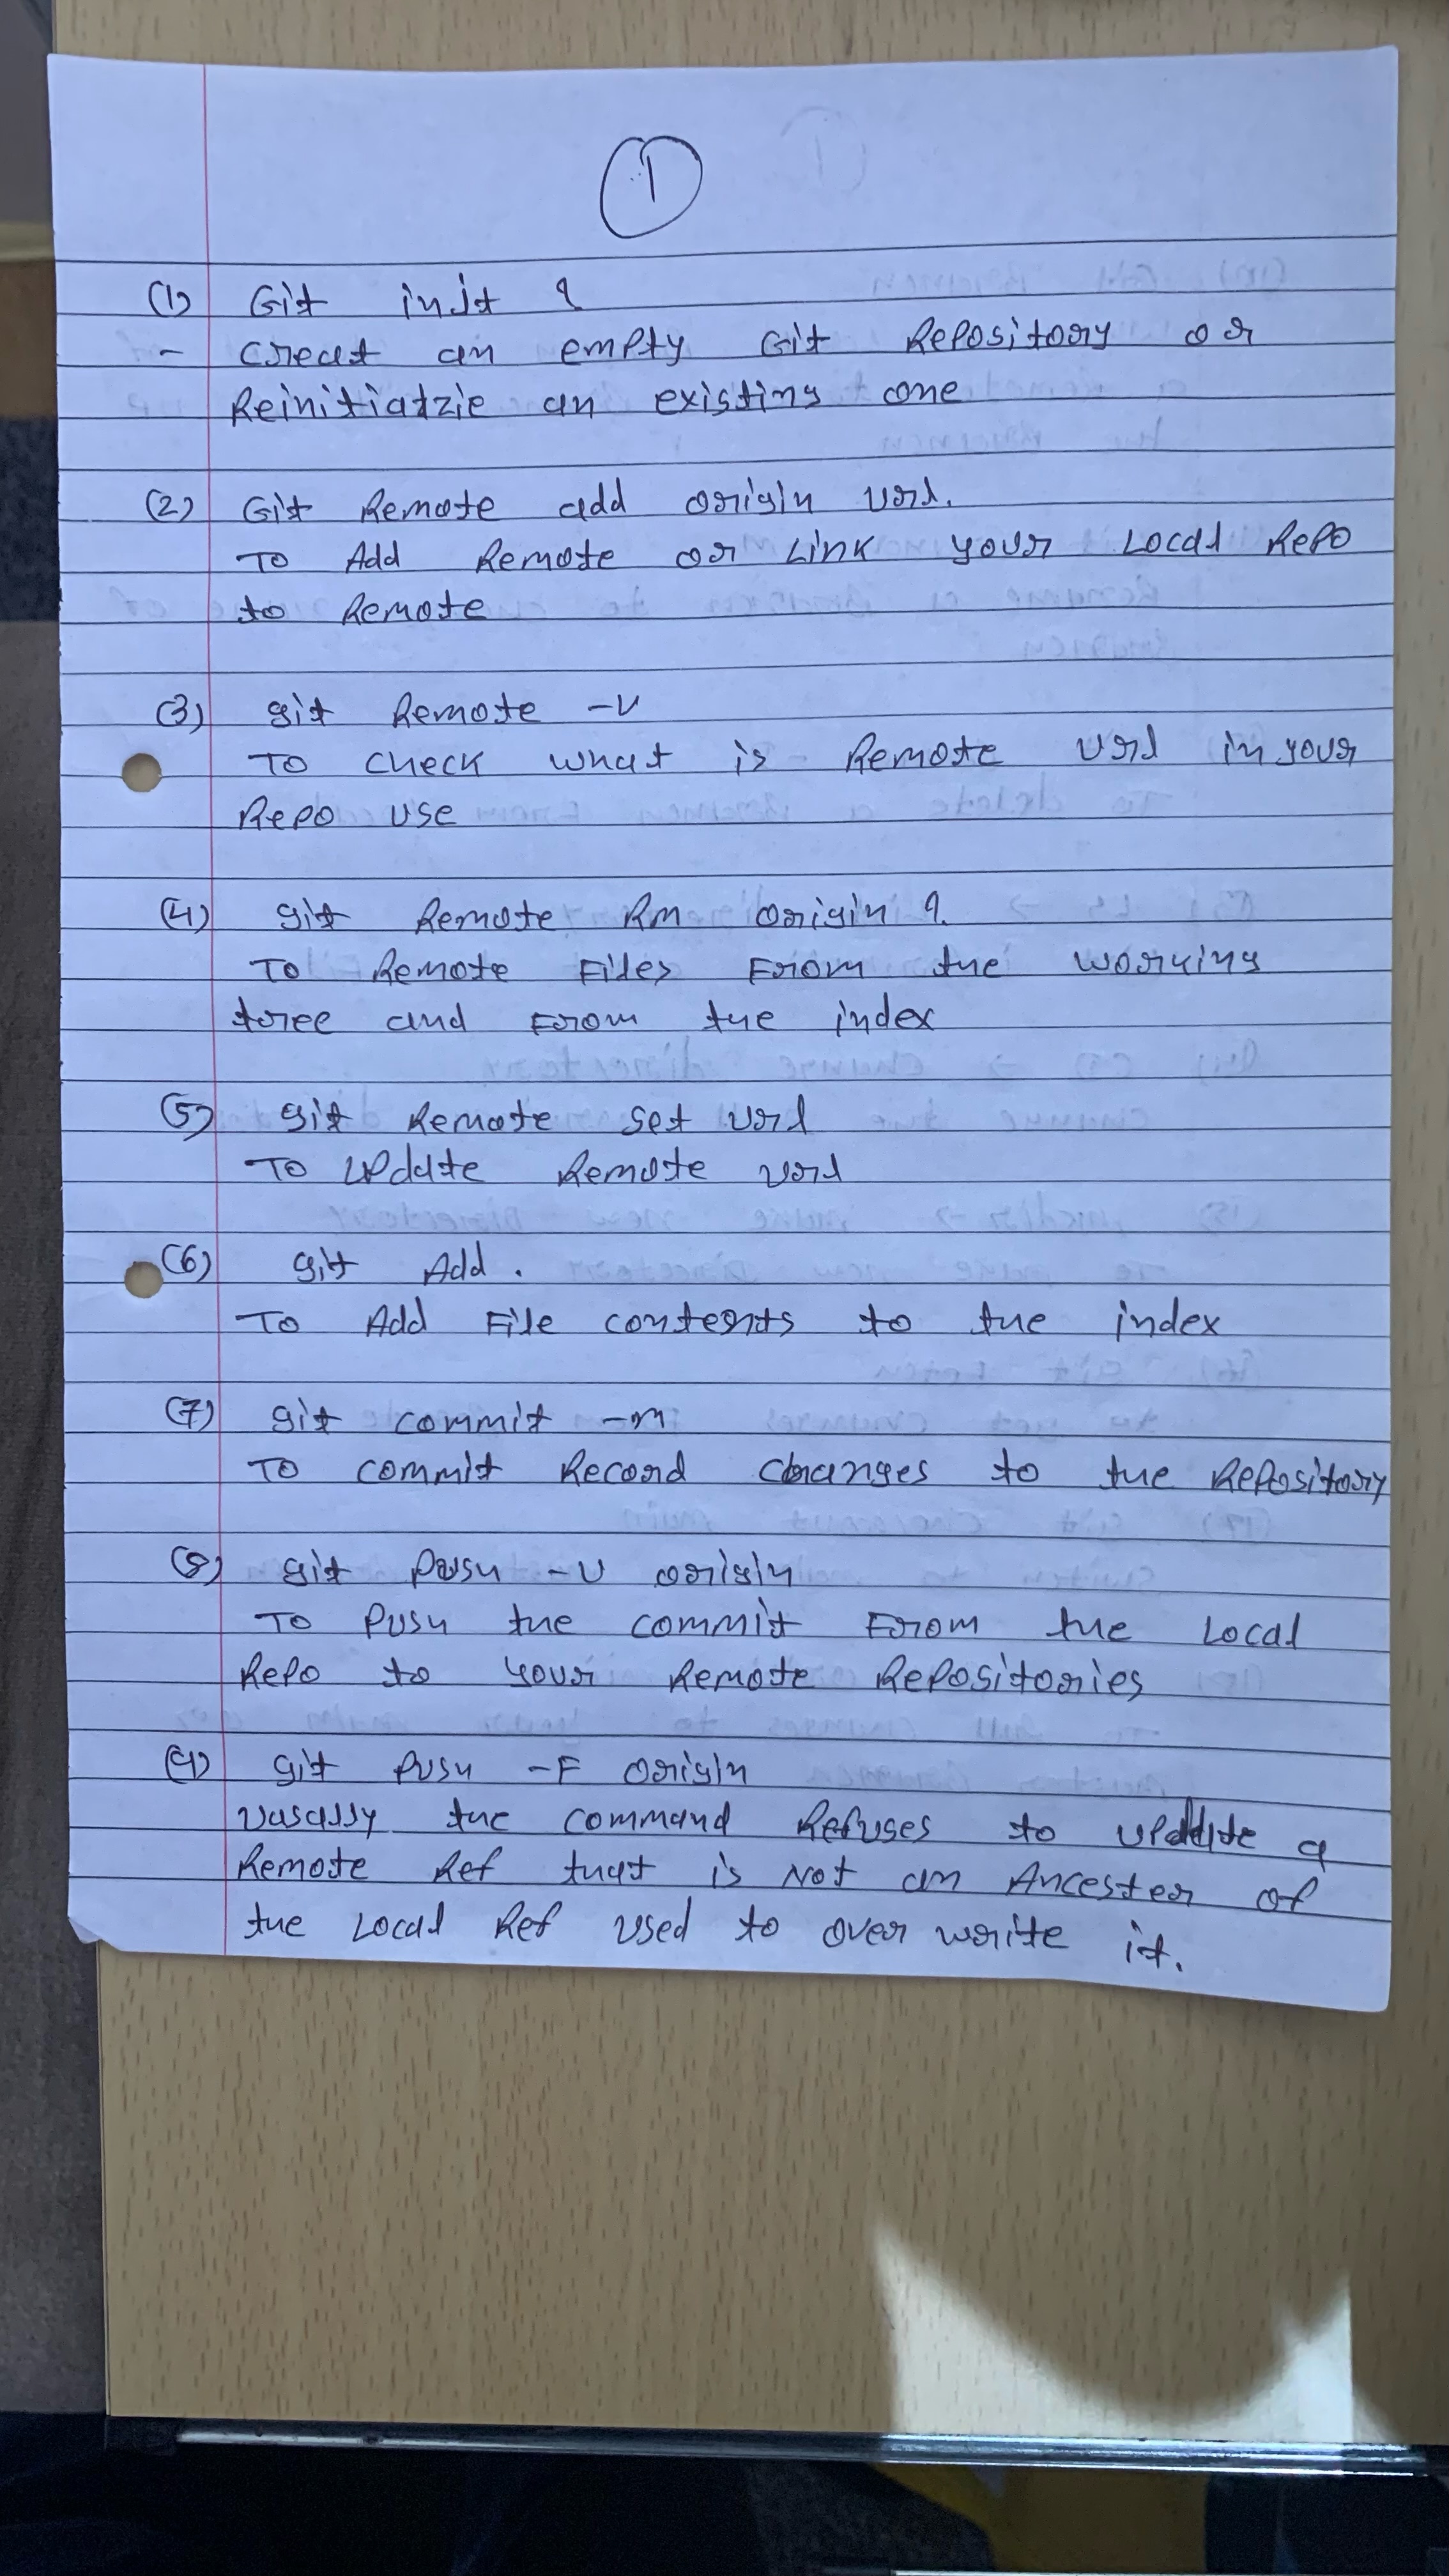 1
(1) Git init ?
- creat an empty Git Repository or
Reinitiatzie an existing one
(2) Git Remote add origin url.
To Add Remote or Link your Local Repo
to Remote
(3) git Remote -v
To check what is Remote url in your
Repo use
(4) git Remote Rm origin ?
To Remote Files From the working
tree and From the index
(5) git Remote set url
To update Remote url
(6) git Add .
To Add File contents to the index
(7) git commit -m
To commit Record changes to the Repository
(8) git push -u origin
To push the commit From the Local
Repo to your Remote Repositories
(9) git push -F origin
usually the command Refuses to update a
Remote Ref that is Not an Ancester of
the Local Ref used to over write it.